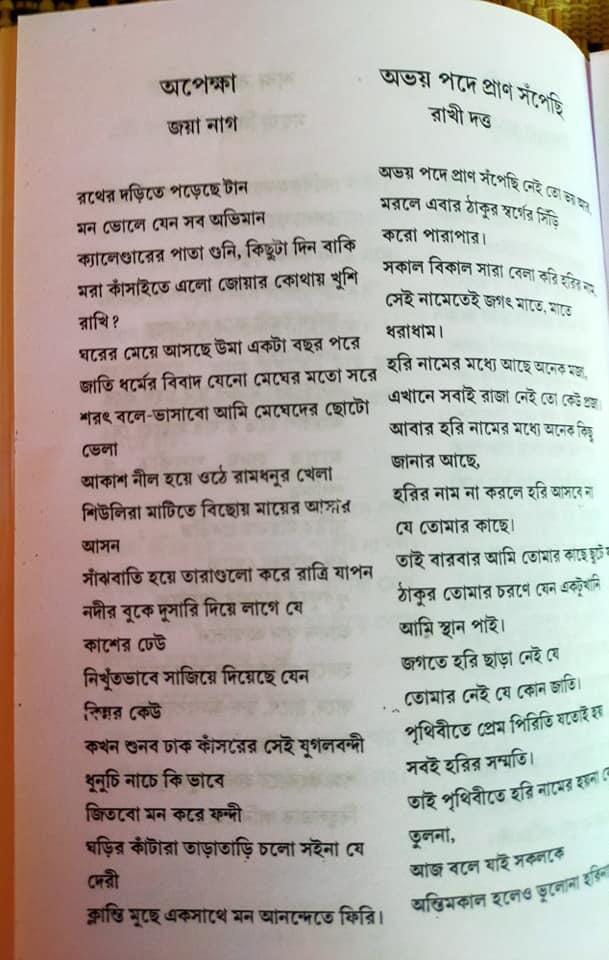 অপেক্ষা
জয়া নাগ
রথের দড়িতে পড়েছে টান
মন ভোলে যেন সব অভিমান
ক্যালেণ্ডারের পাতা গুনি, কিছুটা দিন বাকি
মরা কাঁসাইতে এলো জোয়ার কোথায় খুশি
রাখি?
ঘরের মেয়ে আসছে উমা একটা বছর পরে
জাতি ধর্মের বিবাদ যেনো মেঘের মতো সরে
শরৎ বলে-ভাসাবো আমি মেঘেদের ছোটো
ভেলা
আকাশ নীল হয়ে ওঠে রামধনুর খেলা
শিউলিরা মাটিতে বিছোয় মায়ের আসার
আসন
সাঁঝবাতি হয়ে তারাগুলো করে রাত্রি যাপন
নদীর বুকে দুসারি দিয়ে লাগে যে
কাশের ঢেউ
নিখুঁতভাবে সাজিয়ে দিয়েছে যেন
কেউ
কখন শুনব ঢাক কাঁসরের সেই যুগলবন্দী
ধুনুচি নাচে কি ভাবে
জিতবো মন করে ফন্দী
ঘড়ির কাঁটারা তাড়াতাড়ি চলো সইনা যে
দেরী
ক্লান্তি মুছে একসাথে মন আনন্দেতে ফিরি।
অভয় পদে প্রাণ সঁপেছি
রাখী দত্ত
অভয় পদে প্রাণ সঁপেছি নেই তো ভয় আর,
মরলে এবার ঠাকুর স্বর্গের সিঁড়ি
করো পারাপার।
সকাল বিকাল সারা বেলা করি হরির নাম,
সেই নামেতেই জগৎ মাতে, মাতে
ধরাধাম।
হরি নামের মধ্যে আছে অনেক মজা,
এখানে সবাই রাজা নেই তো কেউ প্রজা।
আবার হরি নামের মধ্যে অনেক কিছু
জানার আছে,
হরির নাম না করলে হরি আসবে না
যে তোমার কাছে।
তাই বারবার আমি তোমার কাছে ছুটে
ঠাকুর তোমার চরণে যেন একটুখানি
আমি স্থান পাই।
জগতে হরি ছাড়া নেই যে
তোমার নেই যে কোন জাতি।
পৃথিবীতে প্রেম পিরিতি যতোই হয়
সবই হরির সম্মতি।
তাই পৃথিবীতে হরি নামের হয়না
তুলনা,
আজ বলে যাই সকলকে
অন্তিমকাল হলেও ভুলোনা